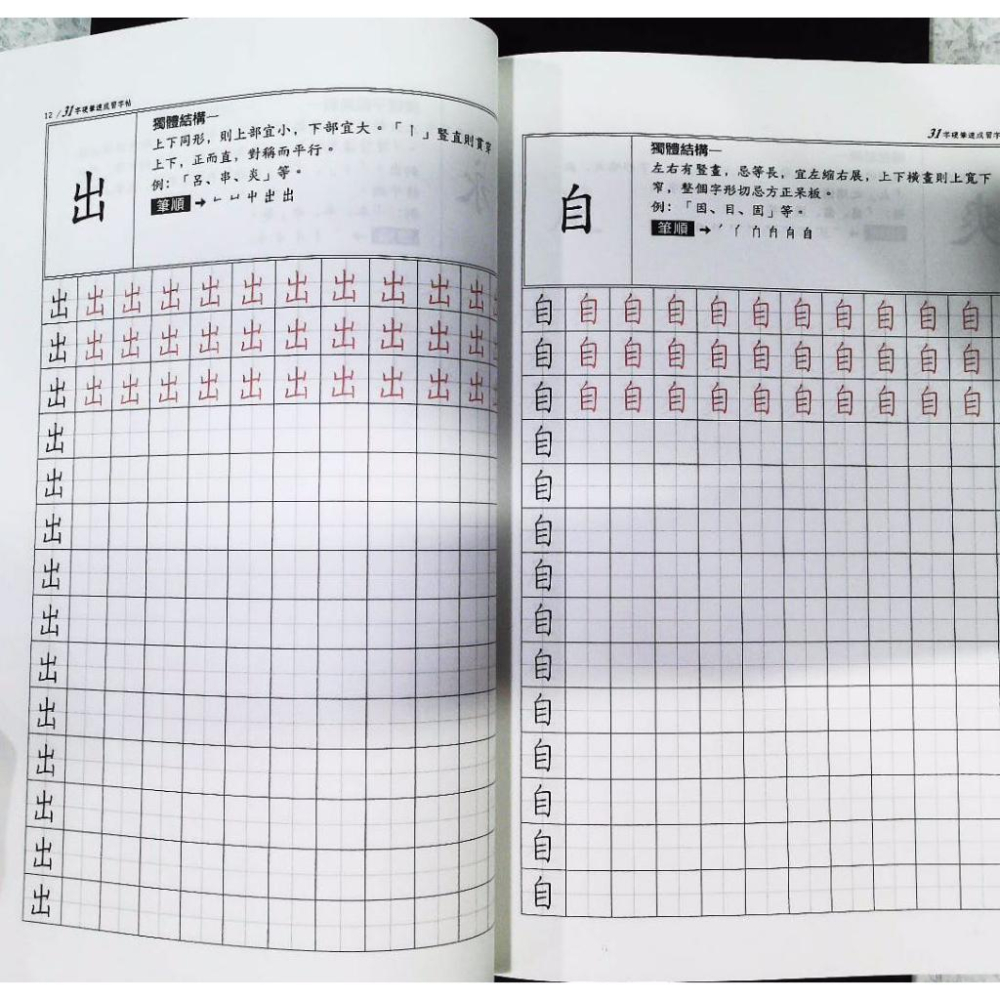 12 / 31字硬筆速成習字帖
出
獨體結構一
上下同形，則上部宜小，下部宜大。「丨」豎直則貫穿
上下，正而直，對稱而平行。
例：「呂、串、炎」等。
筆順 → 出
出 出 出 出 出 出 出 出 出 出 出
出 出 出 出 出 出 出 出 出 出 出
出 出 出 出 出 出 出 出 出 出 出
出
出
出
出
出
出
出
出
出
出
出
31字硬筆速成習字
自
獨體結構一
左右有豎畫，忌等長，宜左縮右展，上下橫畫則上寬下
窄，整個字形切忌方正呆板。
例：「因、目、固」等。
筆順 → 自
自 自 自 自 自 自 自 自 自 自 自
自 自 自 自 自 自 自 自 自 自 自
自 自 自 自 自 自 自 自 自 自 自
自
自
自
自
自
自
自
自
自
自
自